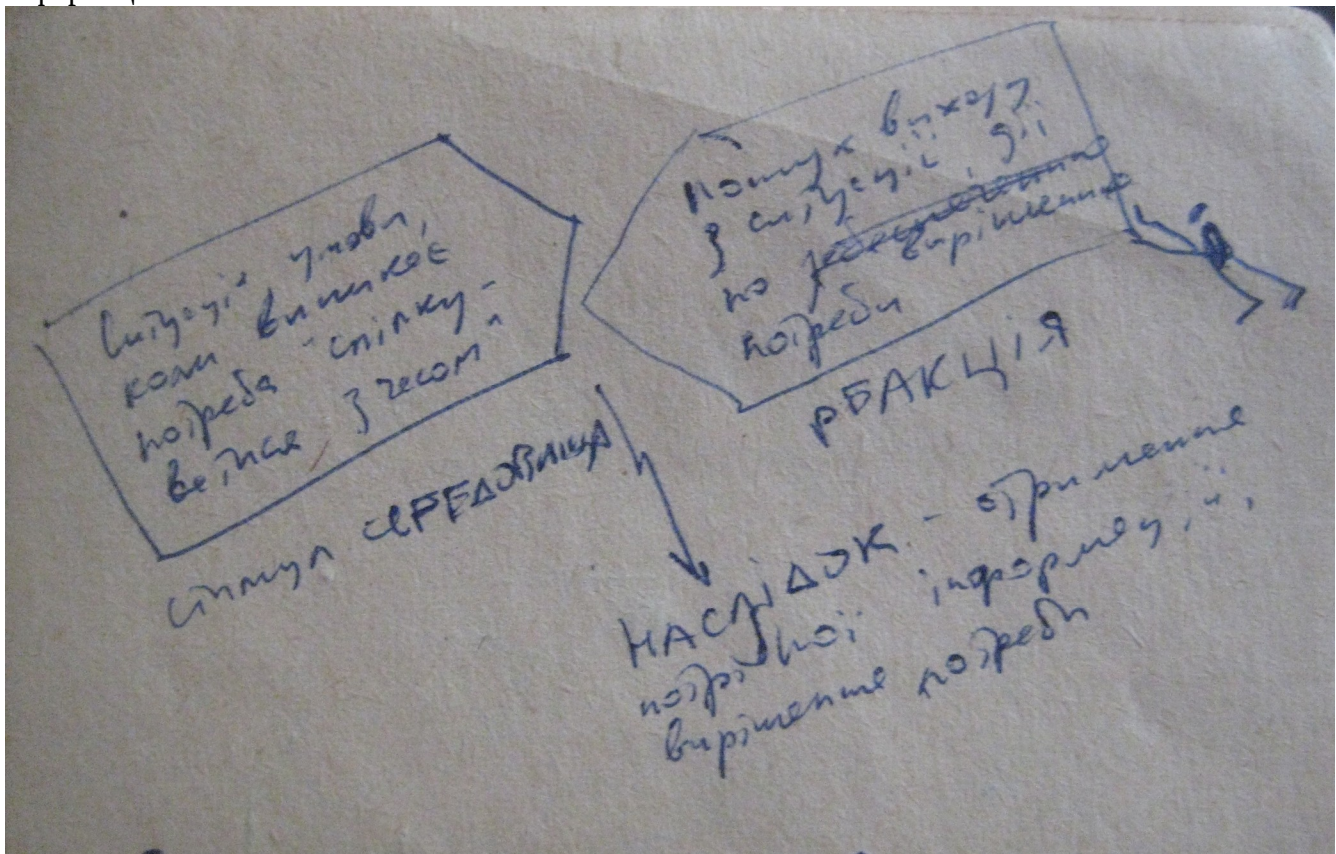 Ситуація, умови,
коли виникає
потреба "спілку-
ватися з часом"
стимул СЕРЕДОВИЩА
Пошук виходу
з ситуації, дії
по вирішенню
потреби
РЕАКЦІЯ
НАСЛІДОК - отримання
потрібної інформації,
вирішення потреби